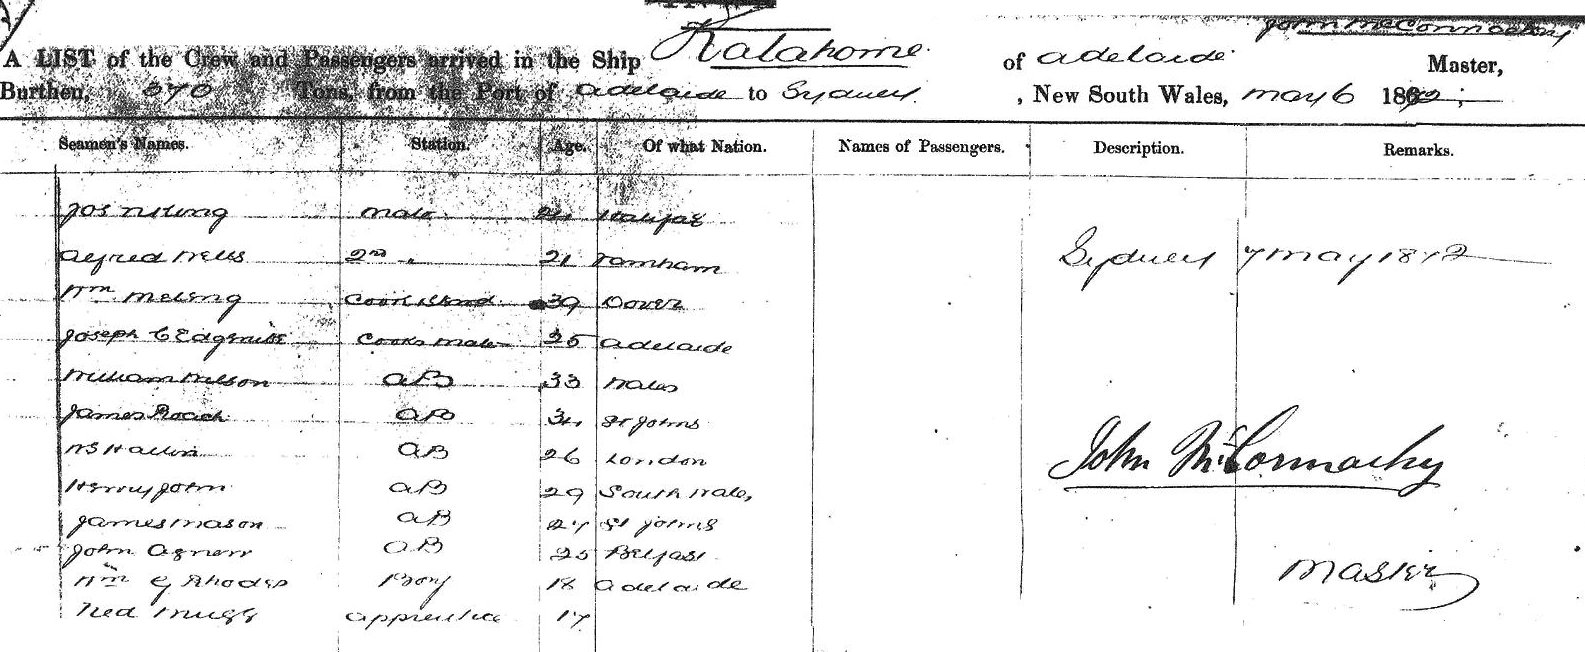 John McCormacky
A LIST of the Crew and Passengers arrived in the Ship Katahome of Adelaide Master,
Burthen, 370 Tons, from the Port of Adelaide to Sydney, New South Wales, May 6 1872
Seamen's Names. Station. Age. Of what Nation. Names of Passengers. Description. Remarks.
Mate 24 Halifax
Alfred Wells 2nd " 21 Sydney 7 May 1872
Wm 39 Dover
Joseph C Cooks Mate 25 Adelaide
William Wilson AB 33 Wales
James Roach AB 34 St Johns
AB 26 London John McCormacky
Henry John AB 29 South Wales,
James Mason AB 27 St Johns
John Agnew AB 25 Belfast
Wm G Rhodes Boy 18 Adelaide Master
Ned Mugg apprentice 17